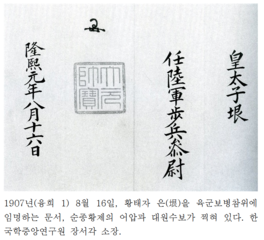 皇太子垠
任陸軍步兵叅尉
隆熙元年八月十六日
大元
帥寶
1907년(융희 1) 8월 16일, 황태자 은(垠)을 육군보병참위에
임명하는 문서, 순종황제의 어압과 대원수보가 찍혀 있다. 한
국학중앙연구원 장서각 소장.